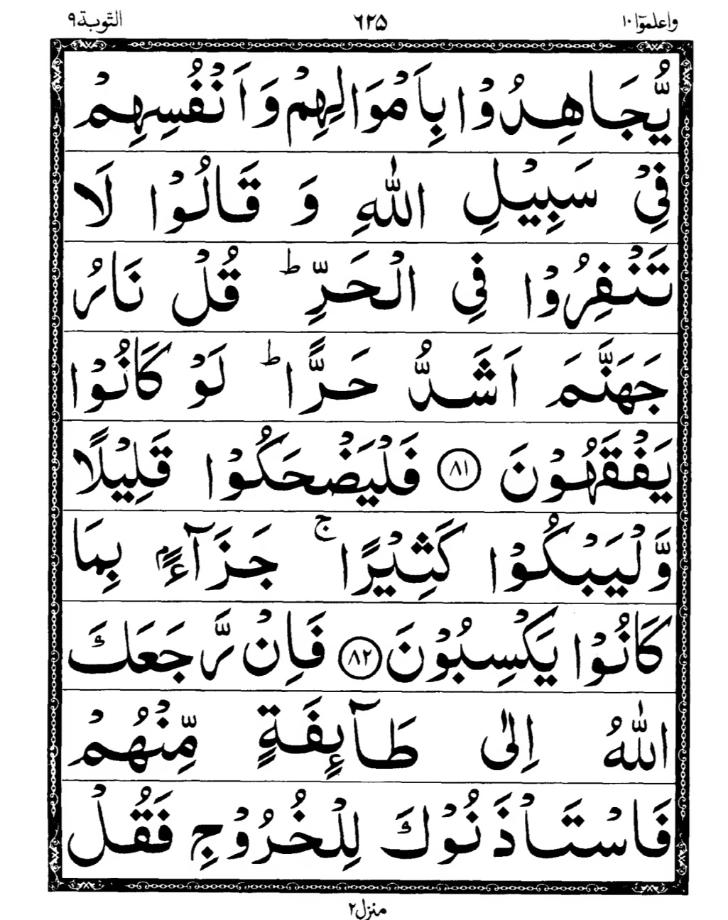 واعلموٓا ١٠ ٦٢٥ التّوبة ٩
يُّجَاهِدُوْا بِاَمْوَالِهِمْ وَاَنْفُسِهِمْ
فِيْ سَبِيْلِ اللّٰهِ وَ قَالُوْا لَا
تَنْفِرُوْا فِي الْحَرِّ ؕ قُلْ نَارُ
جَهَنَّمَ اَشَدُّ حَرًّا ؕ لَوْ كَانُوْا
يَفْقَهُوْنَ ﴿٨١﴾ فَلْيَضْحَكُوْا قَلِيْلًا
وَّلْيَبْكُوْا كَثِيْرًا ۚ جَزَآءًۢ بِمَا
كَانُوْا يَكْسِبُوْنَ ﴿٨٢﴾ فَاِنْ رَّجَعَكَ
اللّٰهُ اِلٰى طَآئِفَةٍ مِّنْهُمْ
فَاسْتَاْذَنُوْكَ لِلْخُرُوْجِ فَقُلْ
منزل ٢